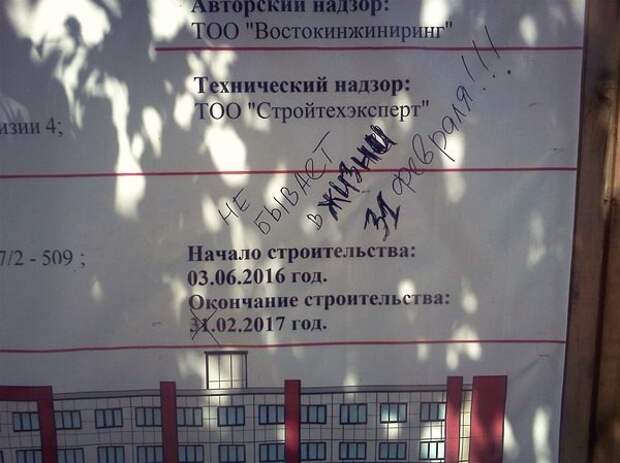 Авторский надзор:
ТОО "Востокинжиниринг"
Технический надзор:
ТОО "Стройтехэксперт"
изии 4;
НЕ
БЫВАЕТ
в жизни
31 февраля!!!
7/2 - 509 ;
Начало строительства:
03.06.2016 год.
Окончание строительства:
31.02.2017 год.